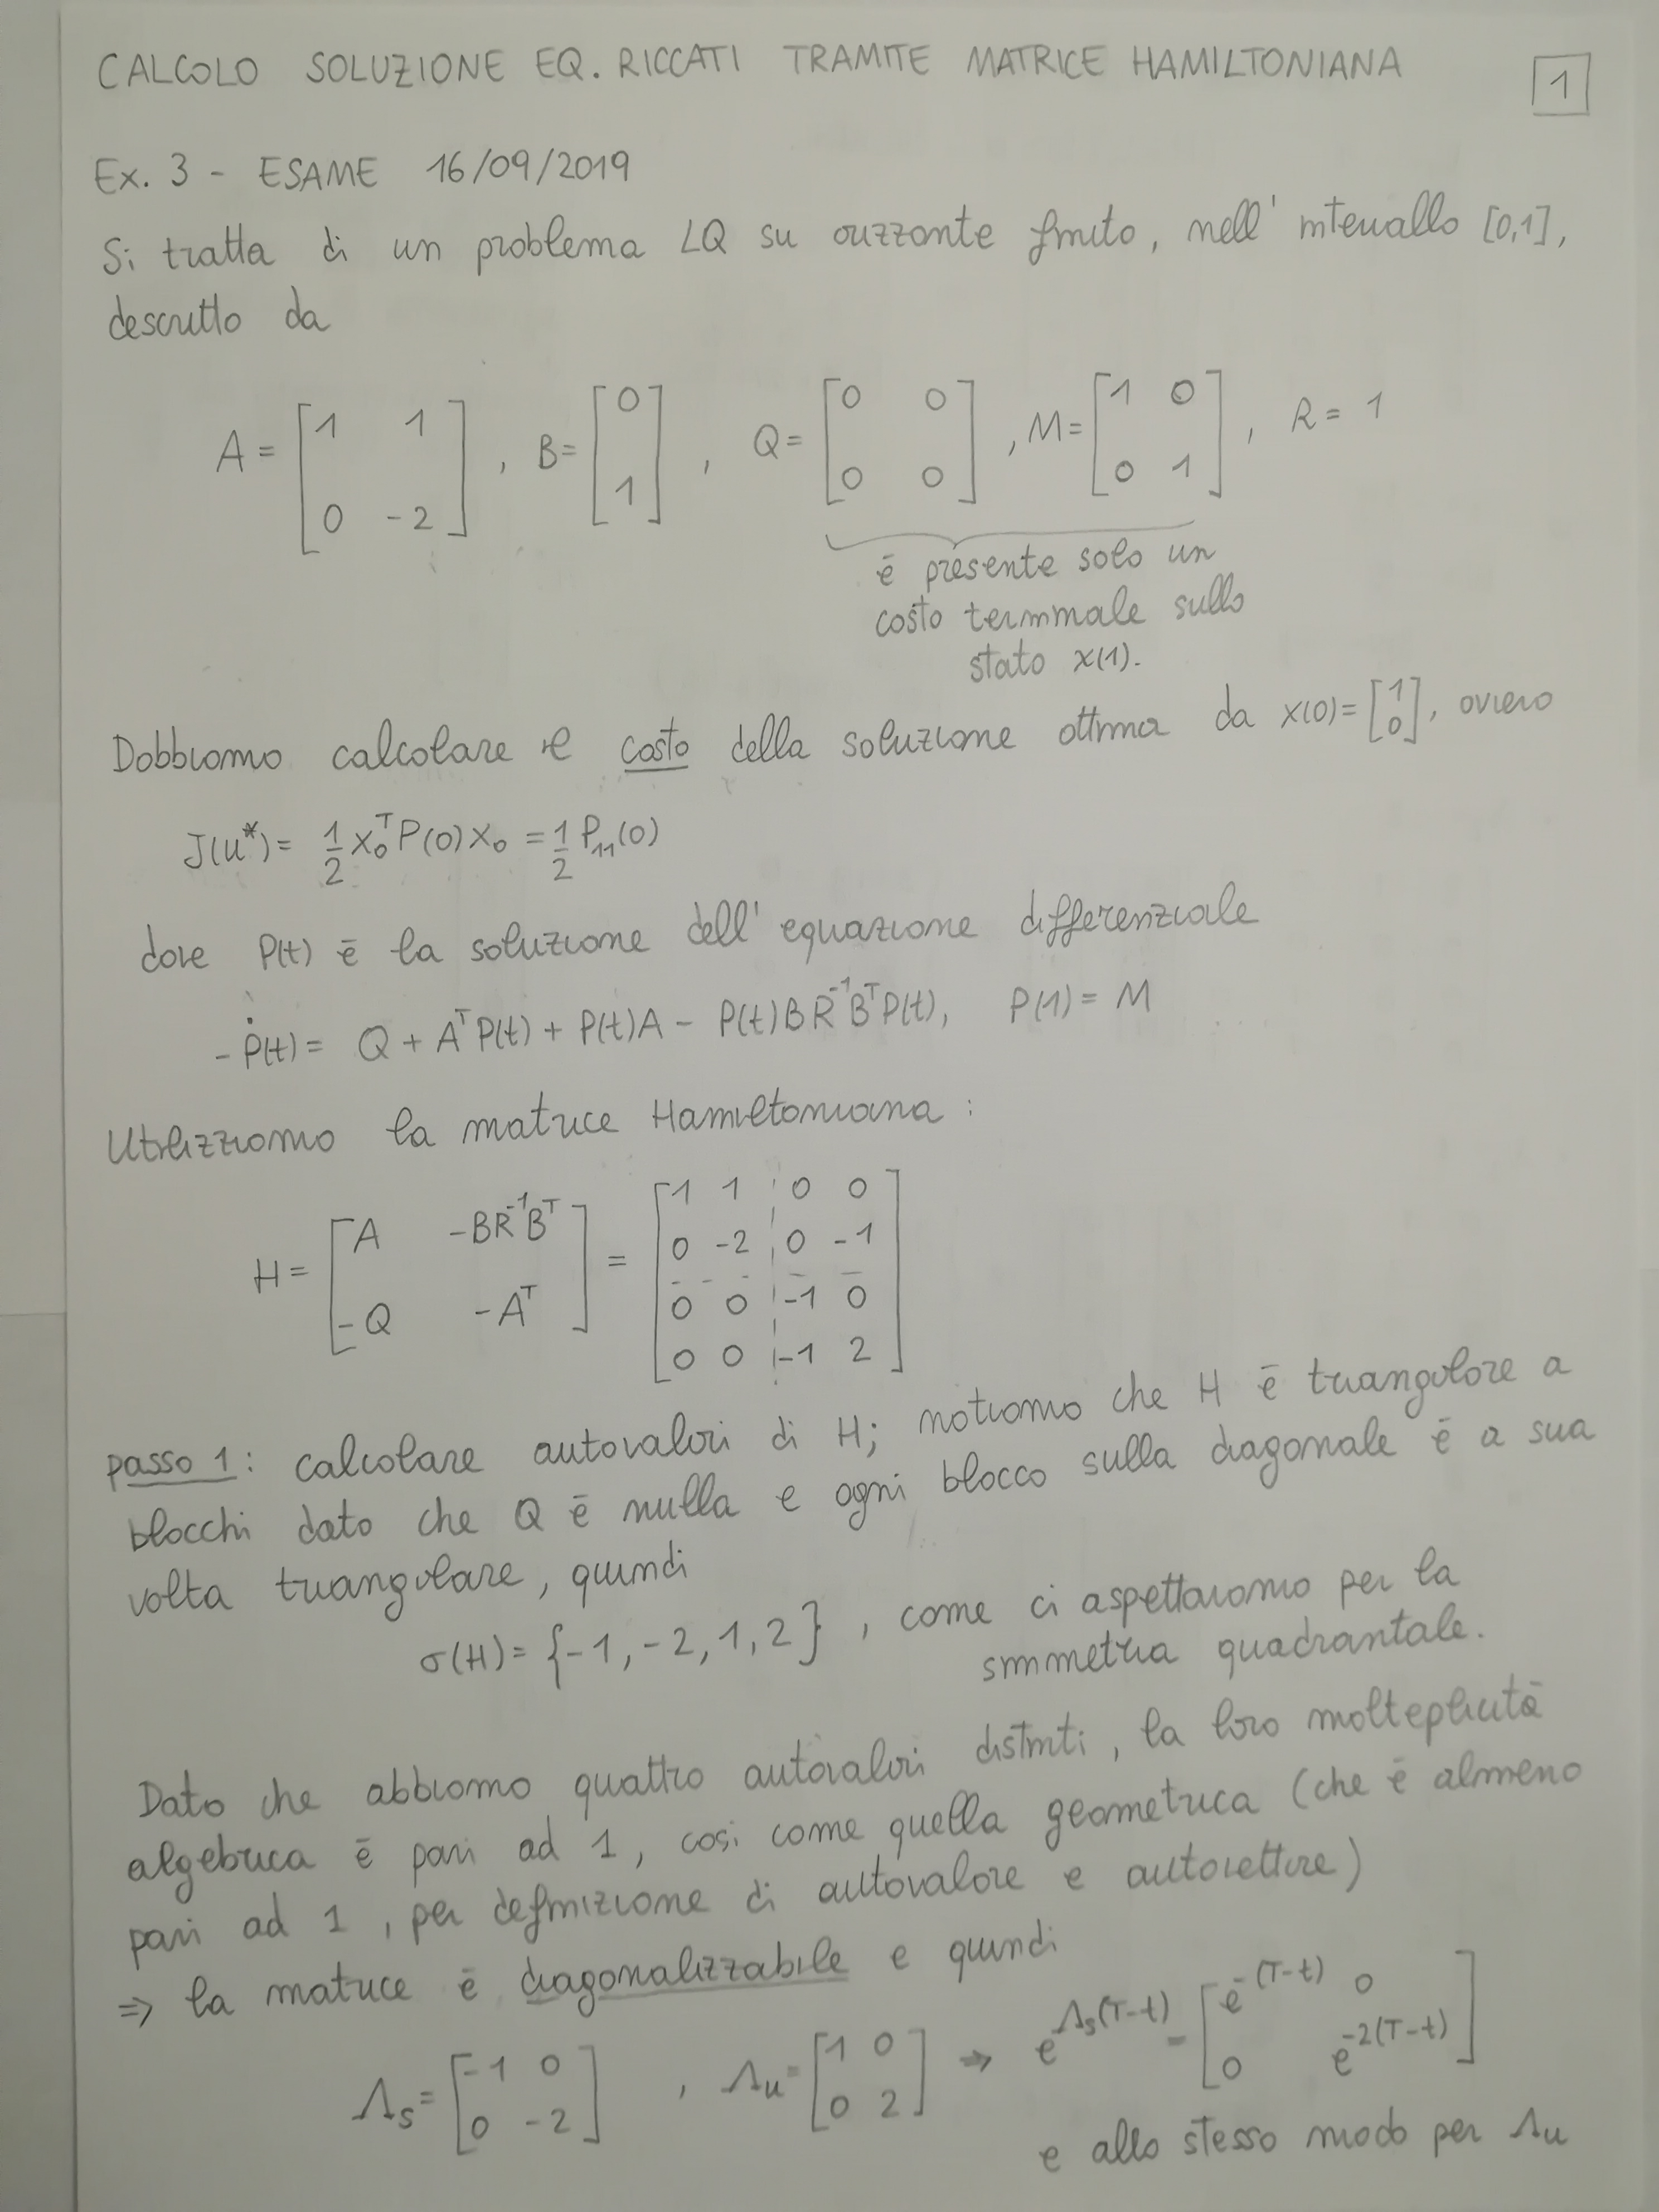 CALCOLO SOLUZIONE EQ. RICCATI TRAMITE MATRICE HAMILTONIANA
1
Ex. 3 - ESAME 16/09/2019
Si tratta di un problema LQ su orizzonte finito, nell' intervallo [0,1],
descritto da
A = [1 1; 0 -2], B = [0; 1], Q = [0 0; 0 0], M = [1 0; 0 1], R = 1
è presente solo un
costo terminale sullo
stato x(1).
Dobbiamo calcolare il costo della soluzione ottima da x(0) = [1; 0], ovvero
J(u*) = 1/2 x₀ᵀ P(0) x₀ = 1/2 P₁₁(0)
dove P(t) è la soluzione dell' equazione differenziale
-Ṗ(t) = Q + AᵀP(t) + P(t)A - P(t)BR⁻¹BᵀP(t), P(1) = M
Utilizziamo la matrice Hamiltoniana :
H = [A -BR⁻¹Bᵀ; -Q -Aᵀ] = [1 1 0 0; 0 -2 0 -1; 0 0 -1 0; 0 0 -1 2]
passo 1: calcolare autovalori di H; notiamo che H è triangolare a
blocchi dato che Q è nulla e ogni blocco sulla diagonale è a sua
volta triangolare, quindi
σ(H) = {-1, -2, 1, 2} , come ci aspettavamo per la
simmetria quadrantale.
Dato che abbiamo quattro autovalori distinti, la loro molteplicità
algebrica è pari ad 1, così come quella geometrica (che è almeno
pari ad 1, per definizione di autovalore e autovettore)
⇒ la matrice è diagonalizzabile e quindi
Λs = [-1 0; 0 -2] , Λu = [1 0; 0 2] ⇒ e^Λs(T-t) = [e^-(T-t) 0; 0 e^-2(T-t)]
e allo stesso modo per Λu